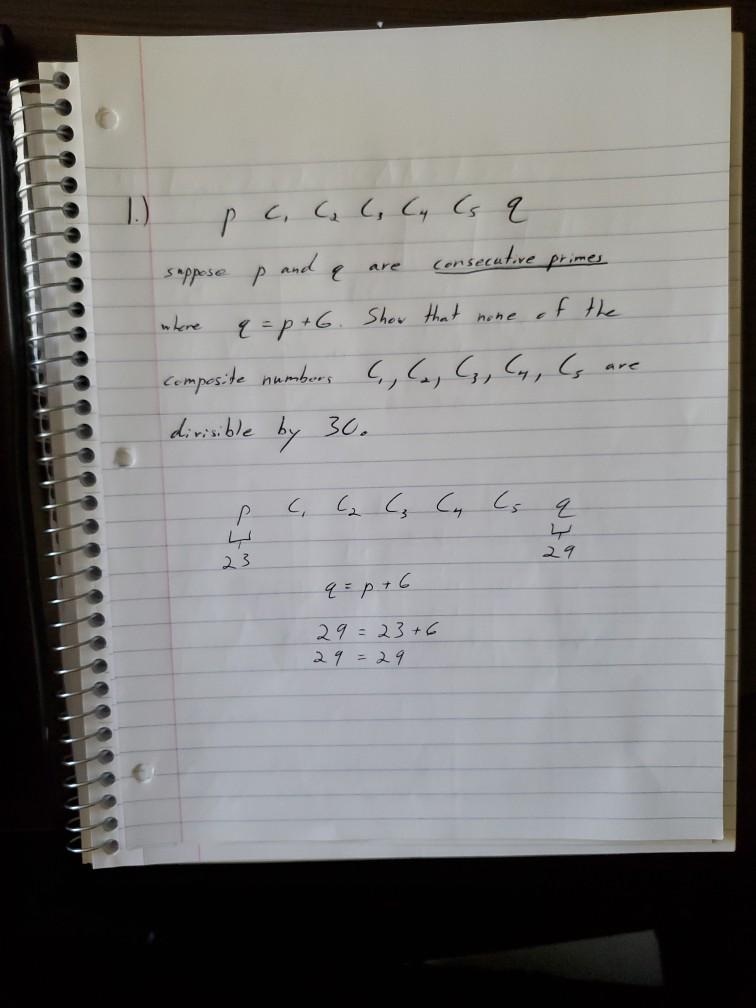 1.) p C₁ C₂ C₃ C₄ C₅ q
suppose p and q are consecutive primes
where q = p + 6. Show that none of the
composite numbers C₁, C₂, C₃, C₄, C₅ are
divisible by 30.
p C₁ C₂ C₃ C₄ C₅ q
23 29
q = p + 6
29 = 23 + 6
29 = 29